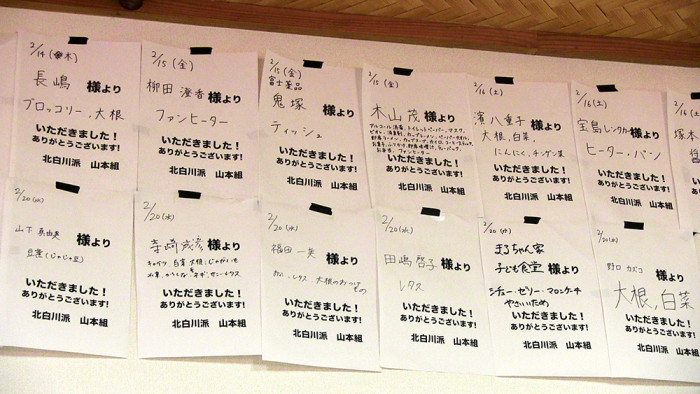 2/14(木)
長嶋 様より
ブロッコリー、大根
いただきました!
ありがとうございます!
北白川派 山本組
2/15(金)
柳田 澄香 様より
ファンヒーター
いただきました!
ありがとうございます!
北白川派 山本組
2/15(金)
富士薬品
鬼塚 様より
ティッシュ
いただきました!
ありがとうございます!
北白川派 山本組
2/15(金)
木山 茂 様より
アルコール消毒、トイレットペーパー、マスク、
ファンヒーター
いただきました!
ありがとうございます!
北白川派 山本組
2/16(土)
濱 八重子 様より
大根、白菜、
にんにく、チンゲン菜
いただきました!
ありがとうございます!
北白川派 山本組
2/16(土)
宝島レンタカー 様より
ヒーター、パン
いただきました!
ありがとうございます!
北白川派 山本組
2/16(土)
塚本
いただ
ありがと
北白川
2/20(水)
山下 様より
いただきました!
ありがとうございます!
北白川派 山本組
2/20(水)
寺崎 成彦 様より
いただきました!
ありがとうございます!
北白川派 山本組
2/20(水)
福田 一美 様より
レタス、大根の
いただきました!
ありがとうございます!
北白川派 山本組
2/20(水)
田嶋 啓子 様より
レタス
いただきました!
ありがとうございます!
北白川派 山本組
2/20(水)
まるちゃん家
子ども食堂 様より
シチュー・ゼリー・
やさいいため
いただきました!
ありがとうございます!
北白川派 山本組
2/20(水)
野口 カズコ 様より
大根、白菜
いただきました!
ありがとうございます!
北白川派 山本組